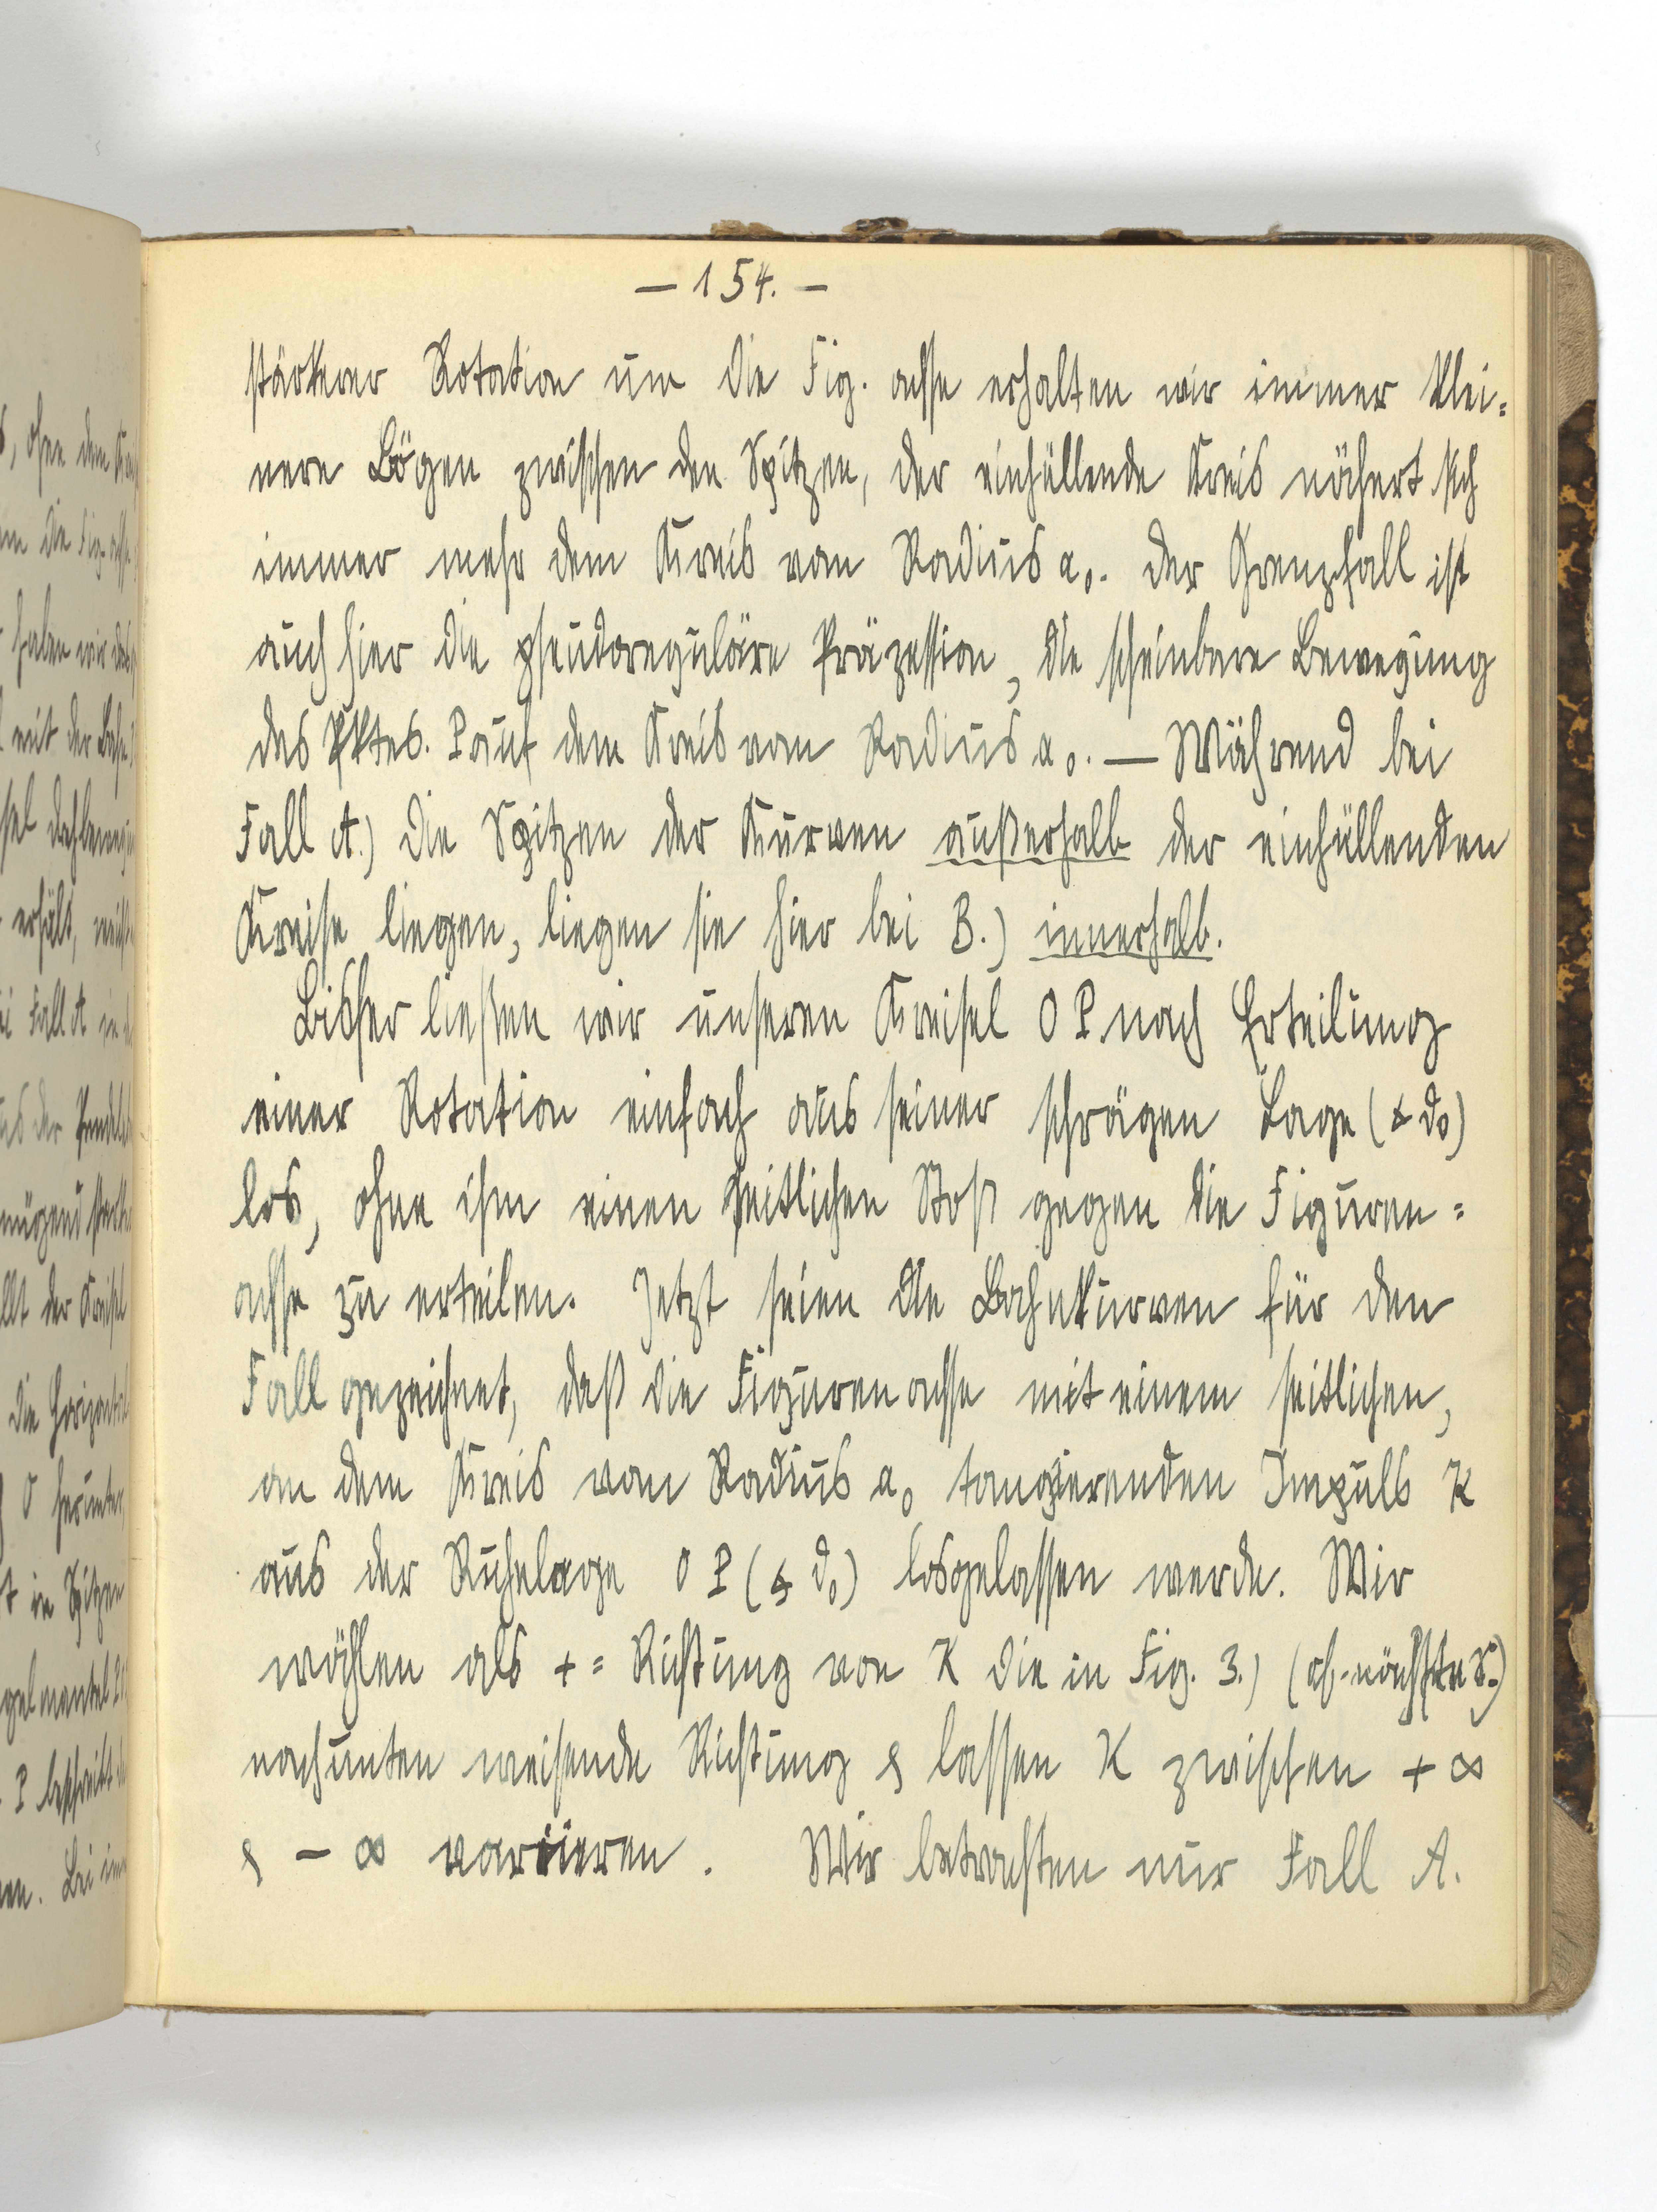 — 154. —
stärkerer Rotation um die Fig. achse erhalten wir immer klei=
nere Bögen zwischen den Spitzen, der einhüllende Kreis nähert sich
immer mehr dem Kreis vom Radius a₀. Der Grenzfall ist
auch hier die pseudoreguläre Präzession, die scheinbare Bewegung
des Pktes. P auf dem Kreis vom Radius a₀. — Während bei
Fall A.) die Spitzen der Kurven außerhalb der einhüllenden
Kreise liegen, liegen sie hier bei B.) innerhalb.
Bisher ließen wir unseren Kreisel O P nach Erteilung
einer Rotation einfach aus seiner schrägen Lage (∢ ϑ₀)
los, ohne ihm einen seitlichen Stoß gegen die Figuren=
achse zu erteilen. Jetzt seien die Bahnkurven für den
Fall gezeichnet, daß die Figurenachse mit einem seitlichen,
an dem Kreis vom Radius a₀ tangierenden Impuls K
aus der Ruhelage O P (∢ ϑ₀) losgelassen werde. Wir
wählen als + = Richtung von K die in Fig. 3.) (cf. nächste S.)
nach unten weisende Richtung & lassen K zwischen + ∞
& – ∞ variieren. Wir betrachten nur Fall A.